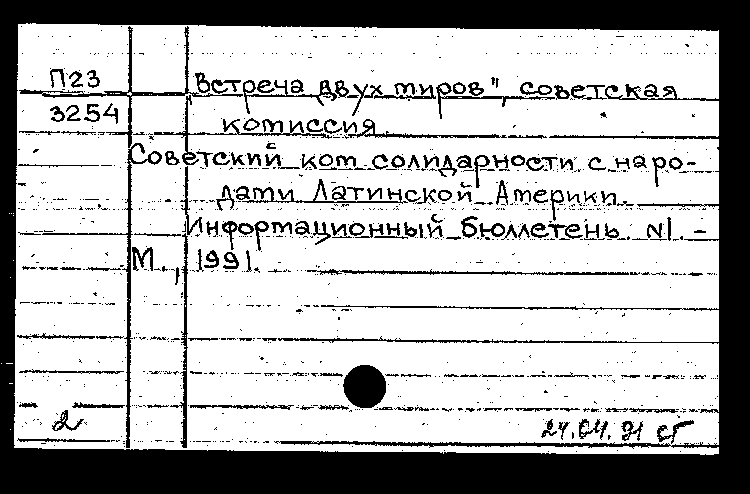 П23
3254
„Встреча двух миров", советская
комиссия.
Советский ком солидарности с наро-
дами Латинской Америки.
Информационный бюллетень. N1. –
М., 1991.
2
24.04.91 сг